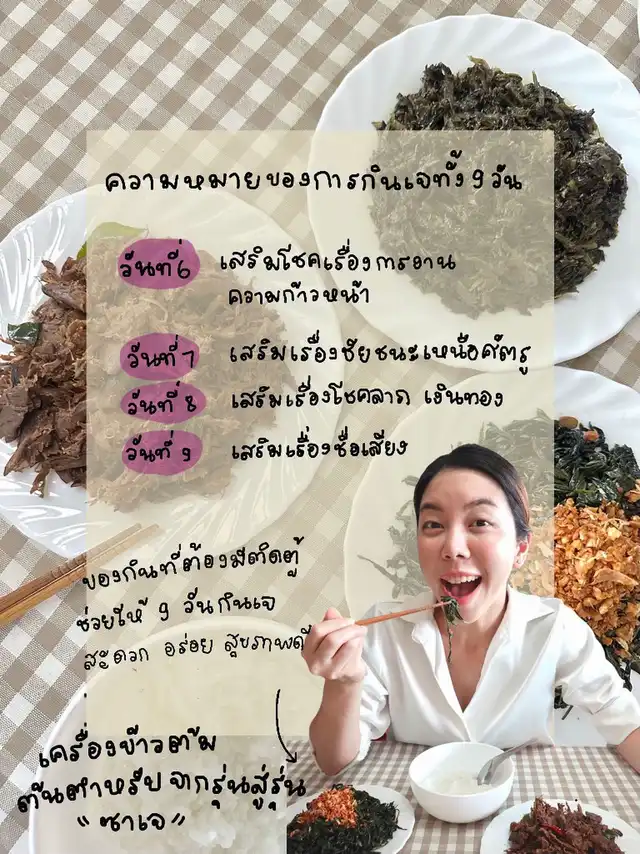 ความหมายของการกินเจทั้ง 9 วัน
วันที่ 6 เสริมโชคเรื่องการงาน
ความก้าวหน้า
วันที่ 7 เสริมเรื่องชัยชนะเหนือศัตรู
วันที่ 8 เสริมเรื่องโชคลาภ เงินทอง
วันที่ 9 เสริมเรื่องชื่อเสียง
ของกินที่ต้องมีติดตู้
ช่วยให้ 9 วันกินเจ
สะดวก อร่อย สุขภาพดี
เครื่องข้าวต้ม
ต้นตำหรับจากรุ่นสู่รุ่น
"ซาเจ"